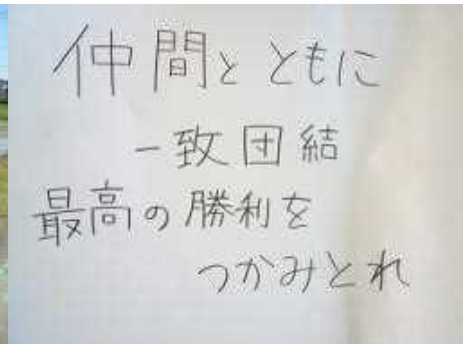 仲間と ともに
一致団結
最高の勝利を
つかみとれ